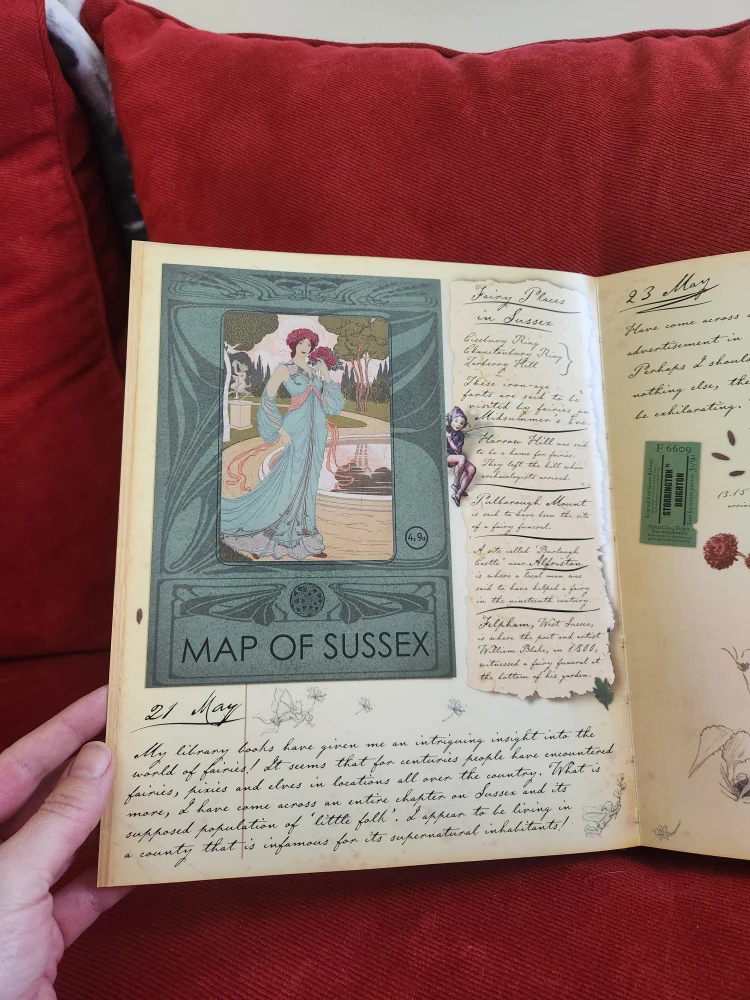 MAP OF SUSSEX
4s9d
Fairy Places
in Sussex
Cissbury Ring
Chanctonbury Ring
Torberry Hill
These iron-age
forts are said to be
visited by fairies on
Midsummer's Eve.
Harrow Hill was said
to be a home for fairies.
They left the hill when
archaeologists arrived.
Pulborough Mount
is said to have been the site
of a fairy funeral.
A site called 'Burlough
Castle' near Alfriston
is where a local man was
said to have helped a fairy
in the nineteenth century.
Felpham, West Sussex,
is where the poet and artist
William Blake, in 1800,
witnessed a fairy funeral at
the bottom of his garden.
21 May
My library books have given me an intriguing insight into the
world of fairies! It seems that for centuries people have encountered
fairies, pixies and elves in locations all over the country. What is
more, I have come across an entire chapter on Sussex and its
supposed population of 'little folk'. I appear to be living in
a county that is infamous for its supernatural inhabitants!
23 May
Have come across
advertisement in
Perhaps I should
nothing else, the
be exhilarating.
F 6609
STORRINGTON to
BRIGHTON
13.15